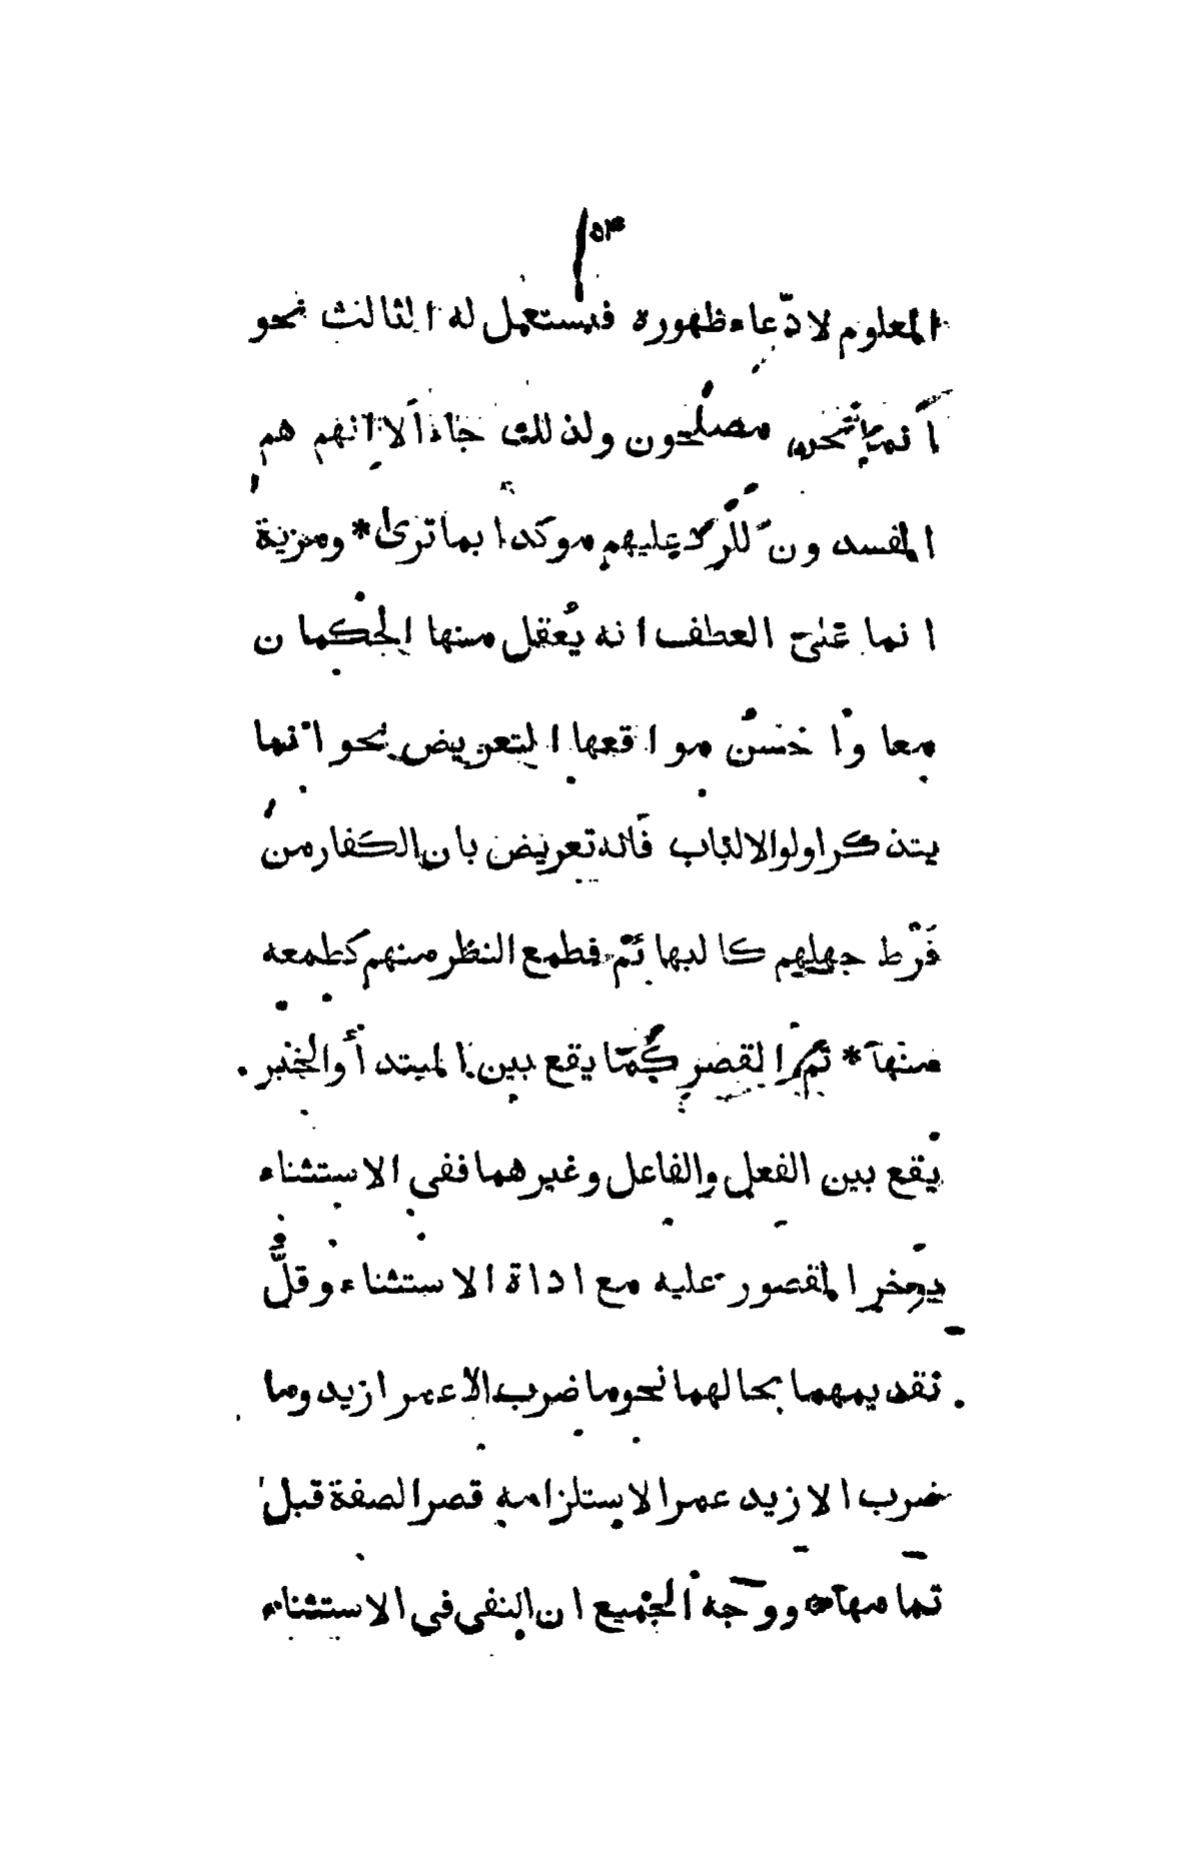 ٥٣
المعلوم لادّعاء ظهوره فيستعمل له الثالث نحو
انما نحن مصلحون ولذلك جاء الا انهم هم
المفسدون للرد عليهم موكدا بما ترى * ومزية
انما على العطف انه يُعقل منها الحكمان
معا واحسن مواقعها التعريض نحو انما
يتذكر اولوا الالباب فانه تعريض بان الكفار من
فَرْط جهلهم كالبهائم فطمع النظر منهم كطمعه
منها * ثم القصر كما يقع بين المبتدأ والخبر
يقع بين الفعل والفاعل وغيرهما ففي الاستثناء
يؤخر المقصور عليه مع اداة الاستثناء وقلَّ
تقديمهما بحالهما نحو ما ضرب الا عمرا زيد وما
ضرب الا زيد عمرا لاستلزامه قصر الصفة قبل
تمامها * ووجه الجميع ان النفى في الاستثناء